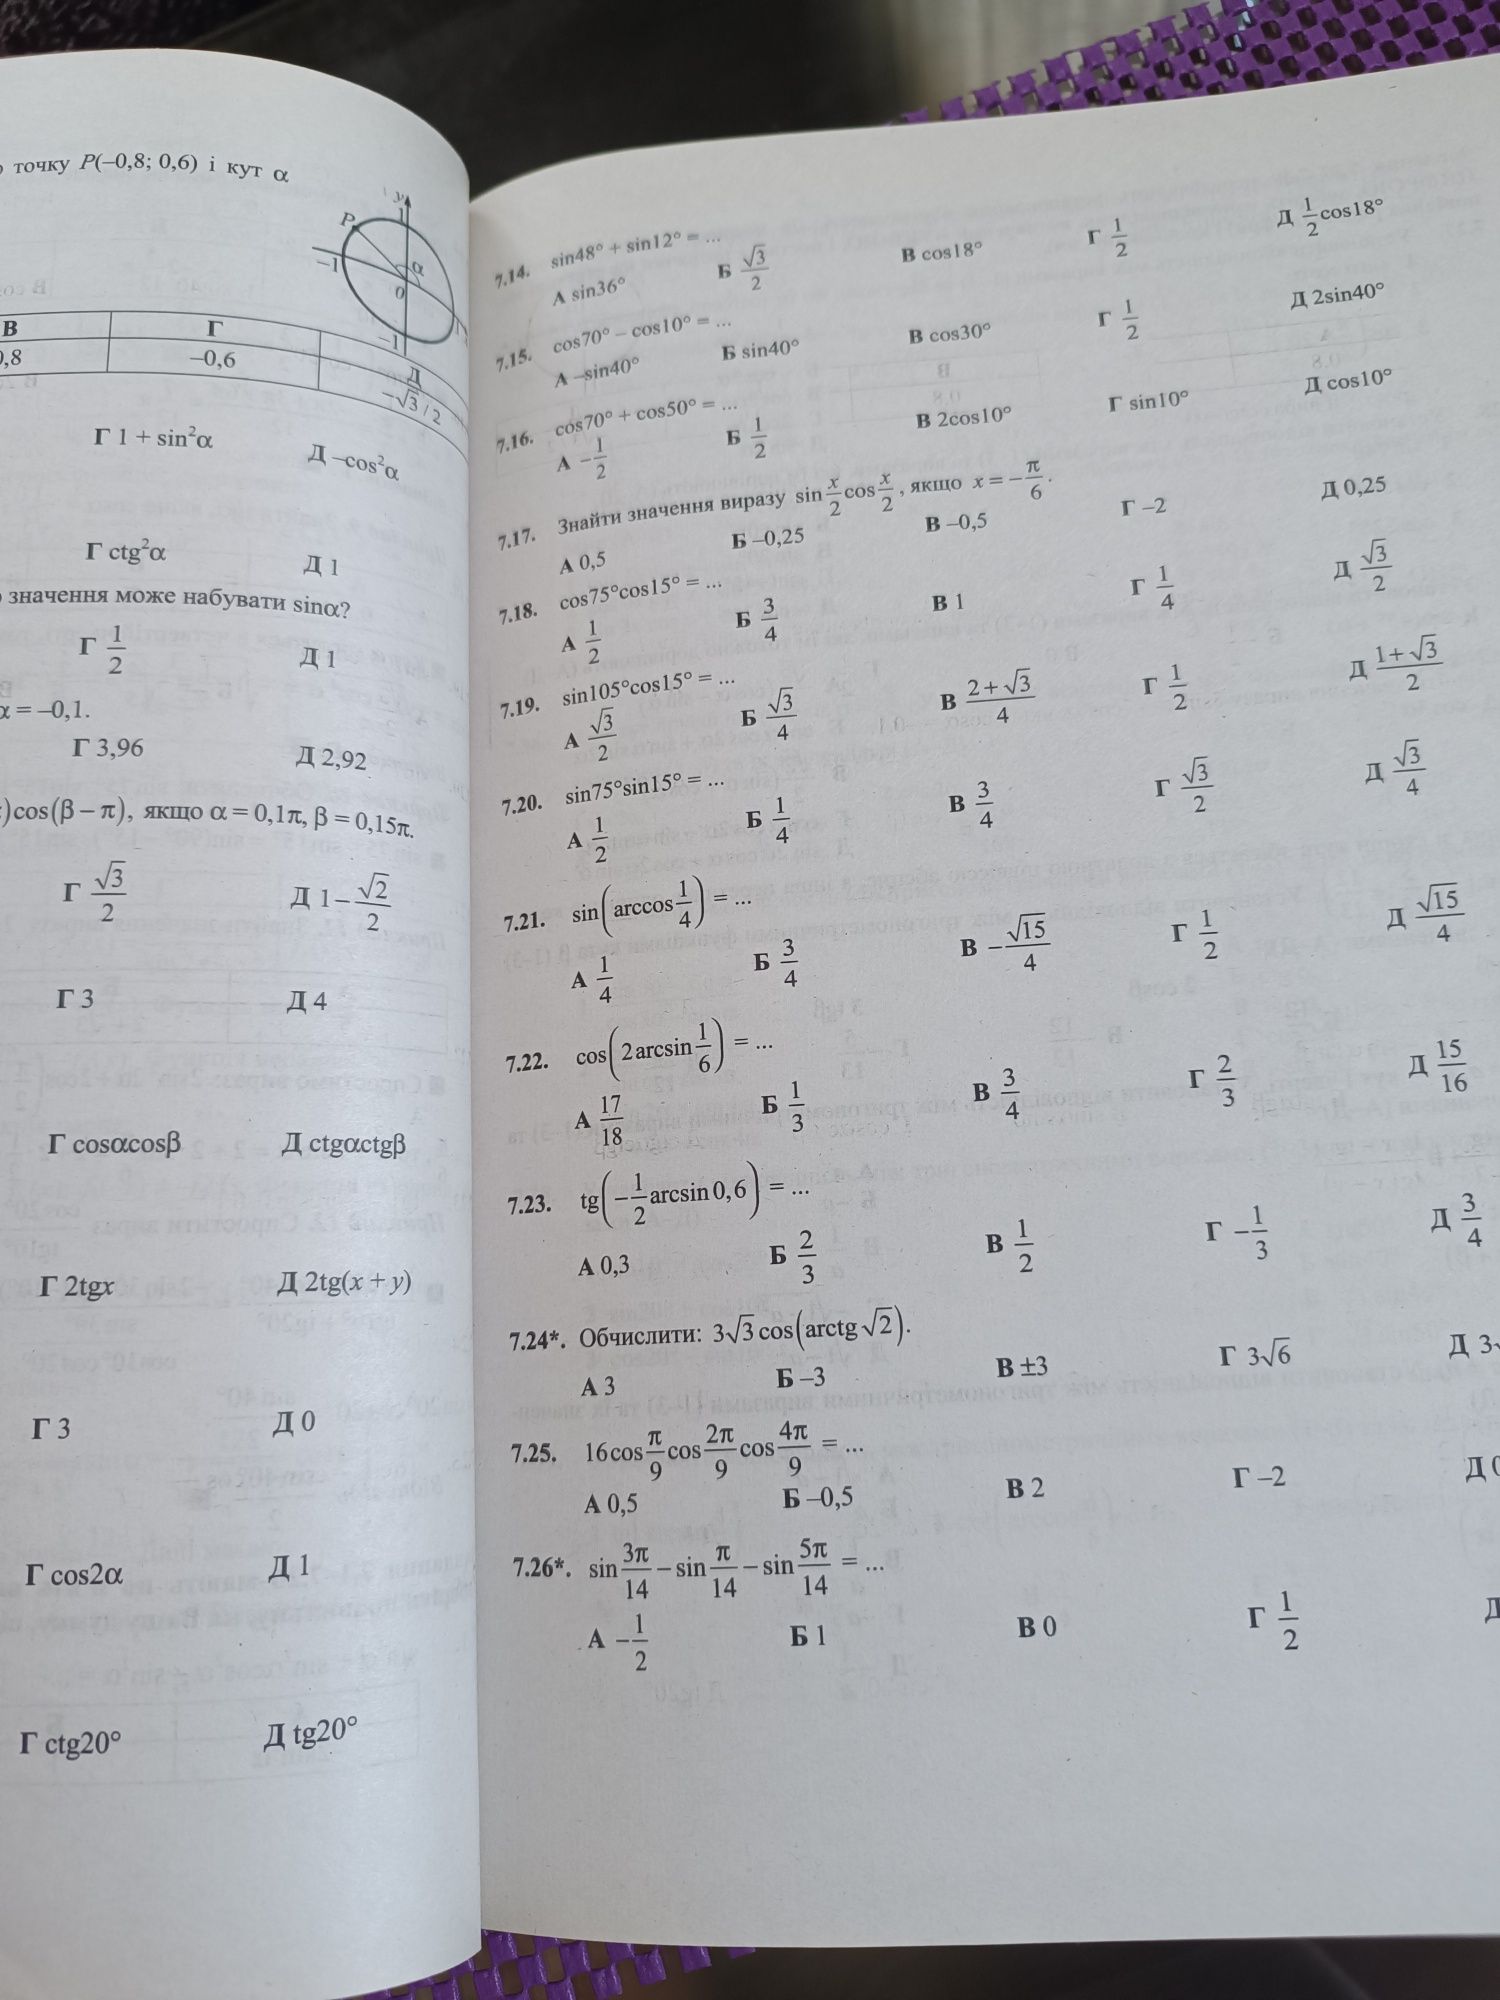 точку P(–0,8; 0,6) і кут α
y
P
1
α
–1
0
1
–1
В Г Д
0,8 –0,6 –√3 / 2
Г 1 + sin²α Д –cos²α
Г ctg²α Д 1
значення може набувати sinα?
Г 1/2 Д 1
α = –0,1.
Г 3,96 Д 2,92
)cos(β – π), якщо α = 0,1π, β = 0,15π.
Г √3/2 Д 1 – √2/2
Г 3 Д 4
Г cosαcosβ Д ctgαctgβ
Г 2tgx Д 2tg(x + y)
Г 3 Д 0
Г cos2α Д 1
Г ctg20° Д tg20°
7.14. sin48° + sin12° = ...
А sin36° Б √3/2 В cos18° Г 1/2 Д 1/2 cos18°
7.15. cos70° – cos10° = ...
А –sin40° Б sin40° В cos30° Г 1/2 Д 2sin40°
7.16. cos70° + cos50° = ...
А –1/2 Б 1/2 В 2cos10° Г sin10° Д cos10°
7.17. Знайти значення виразу sin x/2 cos x/2, якщо x = –π/6.
А 0,5 Б –0,25 В –0,5 Г –2 Д 0,25
7.18. cos75°cos15° = ...
А 1/2 Б 3/4 В 1 Г 1/4 Д √3/2
7.19. sin105°cos15° = ...
А √3/2 Б √3/4 В (2 + √3)/4 Г 1/2 Д (1 + √3)/2
7.20. sin75°sin15° = ...
А 1/2 Б 1/4 В 3/4 Г √3/2 Д √3/4
7.21. sin(arccos 1/4) = ...
А 1/4 Б 3/4 В –√15/4 Г 1/2 Д √15/4
7.22. cos(2arcsin 1/6) = ...
А 17/18 Б 1/3 В 3/4 Г 2/3 Д 15/16
7.23. tg(–1/2 arcsin 0,6) = ...
А 0,3 Б 2/3 В 1/2 Г –1/3 Д 3/4
7.24*. Обчислити: 3√3 cos(arctg √2).
А 3 Б –3 В ±3 Г 3√6 Д 3
7.25. 16cos π/9 cos 2π/9 cos 4π/9 = ...
А 0,5 Б –0,5 В 2 Г –2 Д
7.26*. sin 3π/14 – sin π/14 – sin 5π/14 = ...
А –1/2 Б 1 В 0 Г 1/2 Д